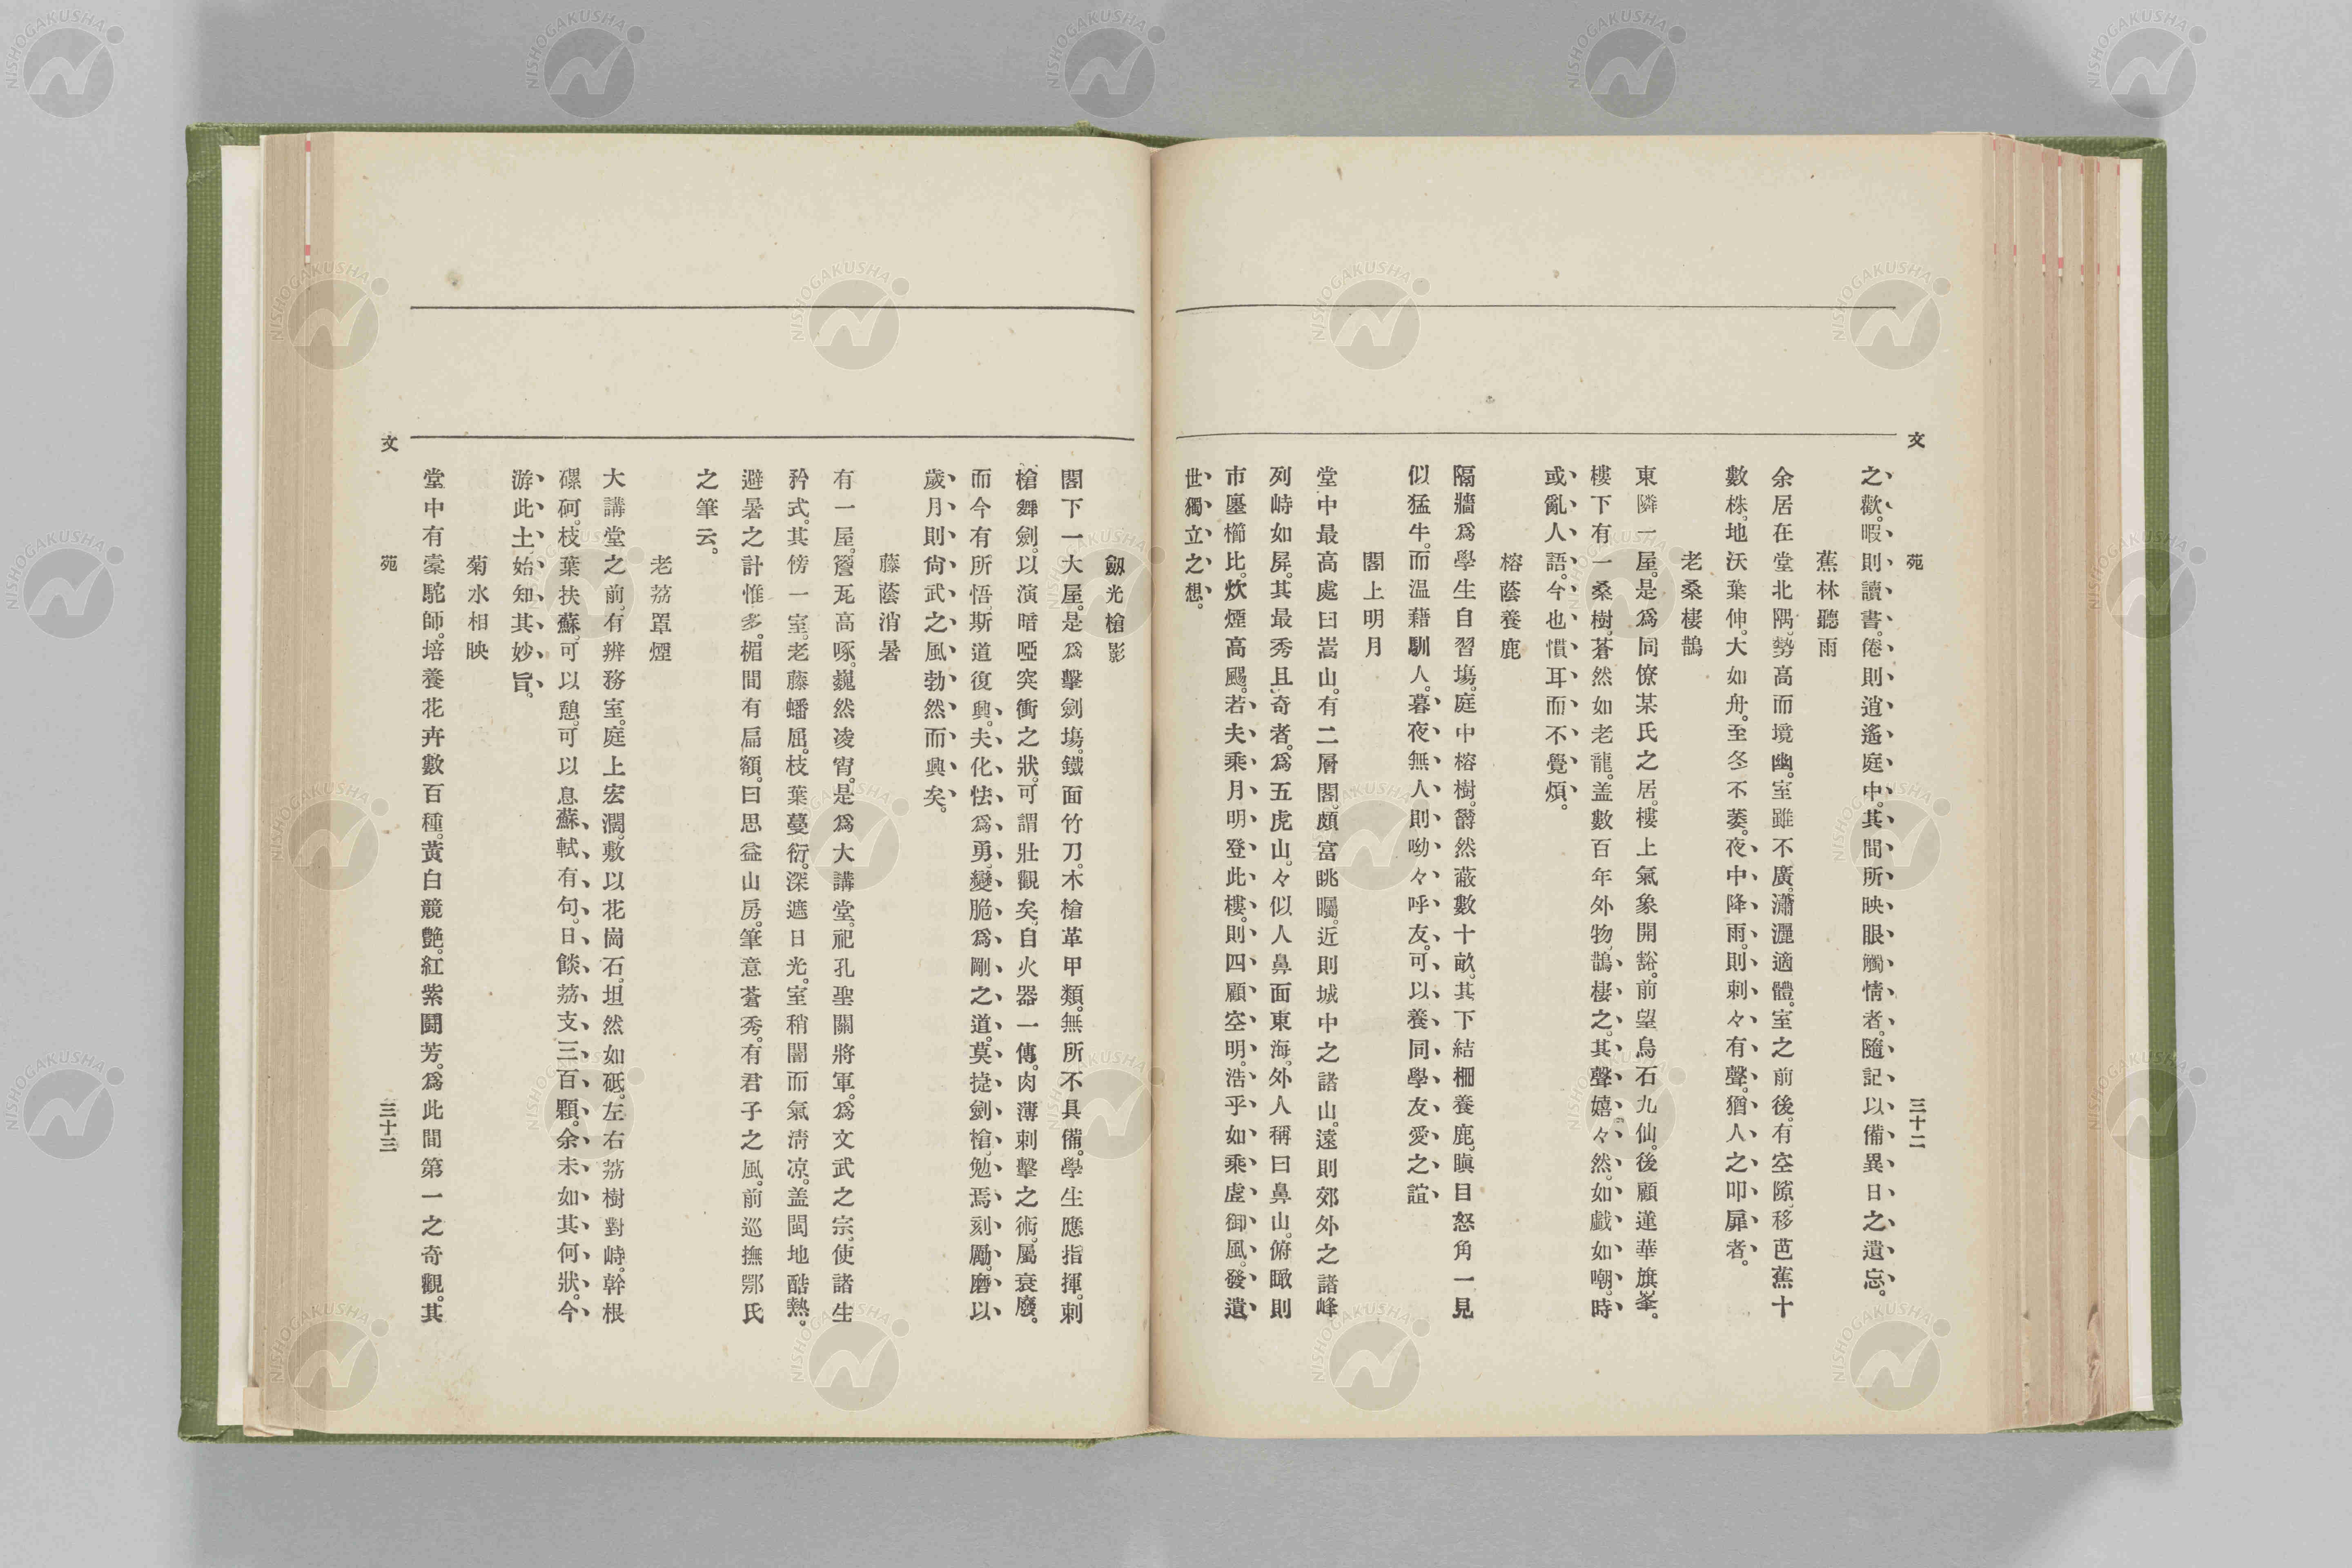 文苑
三十二
之歡。暇則讀書。倦則逍遙庭中。其間所映眼觸情者。隨記以備異日之遺忘。
蕉林聽雨
余居在堂北隅。勢高而境幽。室雖不廣。瀟灑適體。室之前後。有空隙。移芭蕉十
數株。地沃葉伸。大如舟。至冬不萎。夜中降雨。則刺々有聲。猶人之叩扉者。
老桑棲鵲
東隣一屋。是爲同僚某氏之居。樓上氣象開豁。前望烏石九仙。後顧蓮華旗峯。
樓下有一桑樹。蒼然如老龍。盖數百年外物。鵲棲之。其聲嬉々然。如戲如嘲。時
或亂人語。今也慣耳而不覺煩。
榕蔭養鹿
隔牆爲學生自習塲。庭中榕樹。欝然蔽數十畝。其下結柵養鹿。瞋目怒角一見
似猛牛。而温藉馴人。暮夜無人則呦々呼友。可以養同學友愛之誼
閣上明月
堂中最高處曰嵩山。有二層閣。頗富眺矚。近則城中之諸山。遠則郊外之諸峰
列峙如屏。其最秀且奇者。爲五虎山。々似人鼻面東海。外人稱曰鼻山。俯瞰則
市廛櫛比。炊煙高颺。若夫乘月明登此樓。則四顧空明。浩乎如乘虛御風。發遺
世獨立之想。
劔光槍影
閣下一大屋。是爲擊劍塲。鐵面竹刀。木槍革甲類。無所不具備。學生應指揮。刺
槍舞劍。以演暗啞突衝之狀。可謂壯觀矣。自火器一傳。肉薄刺擊之術。屬衰廢。
而今有所悟。斯道復興。夫化怯爲勇。變脆爲剛之道。莫捷劍槍。勉焉刻勵。磨以
歲月。則尙武之風。勃然而興矣。
藤蔭消暑
有一屋。簷瓦高啄。巍然凌霄。是爲大講堂。祀孔聖關將軍。爲文武之宗。使諸生
矜式。其傍一室。老藤蟠屈。枝葉蔓衍。深遮日光。室稍闇而氣淸凉。盖閩地酷熱。
避暑之計惟多。楣間有扁額。曰思益山房。筆意蒼秀。有君子之風。前巡撫鄂氏
之筆云。
老荔罩煙
大講堂之前。有辨務室。庭上宏濶。敷以花崗石。坦然如砥。左右荔樹對峙。幹根
磥砢。枝葉扶蘇。可以憩。可以息。蘇軾有句。日餤荔支三百顆。余未如其何狀。今
游此土。始知其妙旨。
菊水相映
堂中有槖駝師。培養花卉數百種。黃白競艶。紅紫鬪芳。爲此間第一之奇觀。其
文苑
三十三
NISHOGAKUSHA